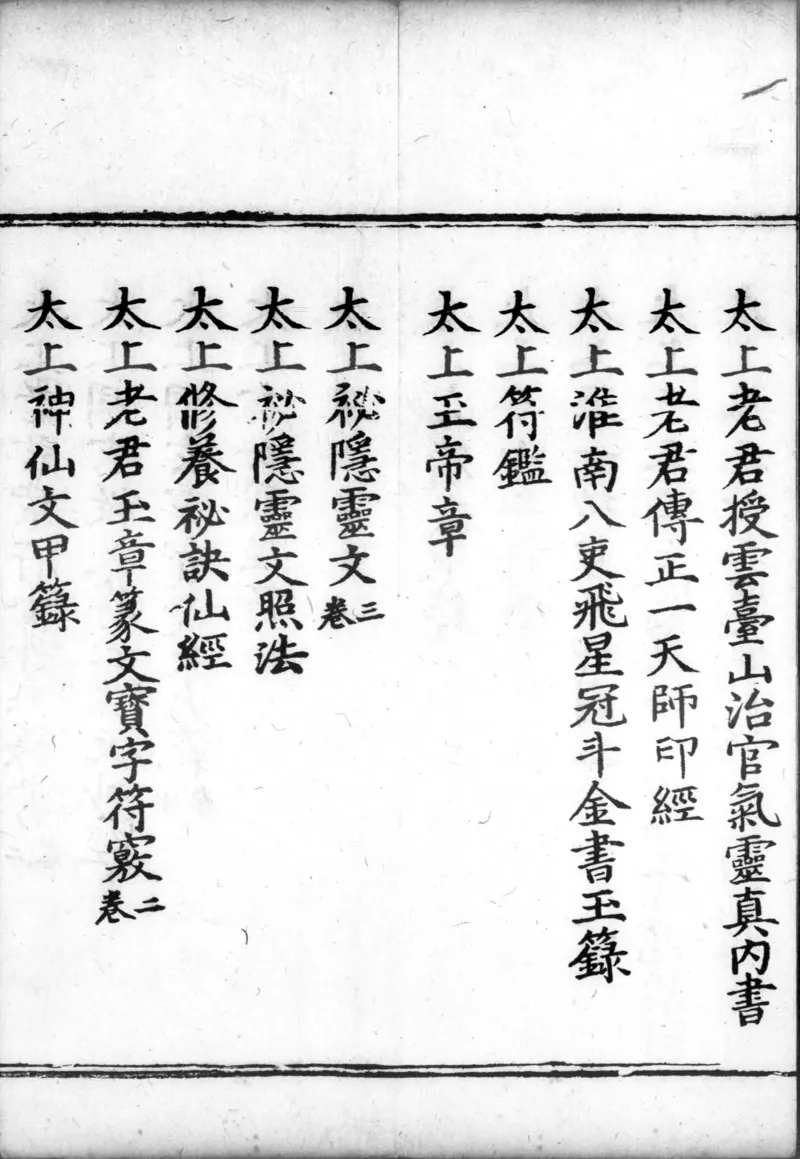 太上老君授雲臺山治官氣靈真内書
太上老君傳正一天師印經
太上淮南八吏飛星冠斗金書玉籙
太上符鑑
太上玉帝章
太上祕隱靈文三卷
太上祕隱靈文照法
太上修養祕訣仙經
太上老君玉章篆文寶字符竅二卷
太上神仙文甲籙